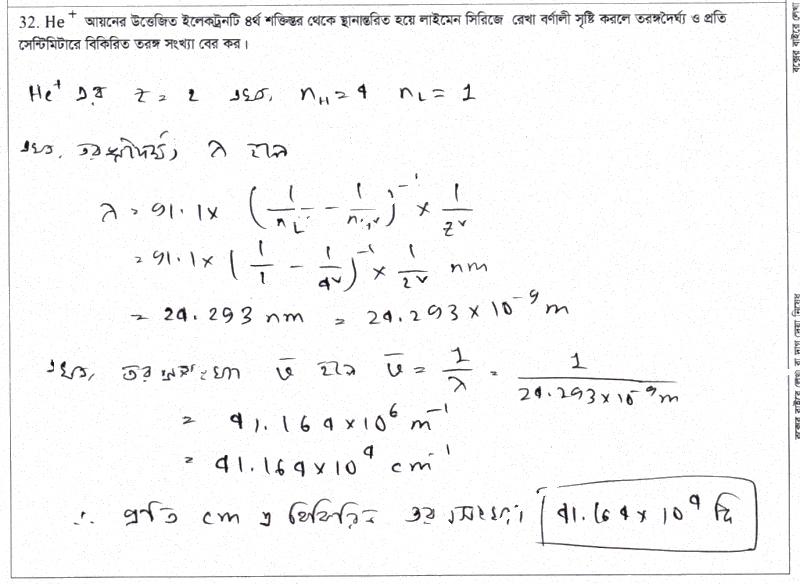 32. He⁺ আয়নের উত্তেজিত ইলেকট্রনটি ৪র্থ শক্তিস্তর থেকে স্থানান্তরিত হয়ে লাইমেন সিরিজে রেখা বর্ণালী সৃষ্টি করলে তরঙ্গদৈর্ঘ্য ও প্রতি
সেন্টিমিটারে বিকিরিত তরঙ্গ সংখ্যা বের কর।
He⁺ এর z = 2 এবং, n_H = 4 n_L = 1
এখন, তরঙ্গদৈর্ঘ্য, λ হলে
λ = 91.1 × (1/n_L² − 1/n_H²)⁻¹ × 1/z²
= 91.1 × (1/1 − 1/4²)⁻¹ × 1/2² nm
= 24.293 nm = 24.293 × 10⁻⁹ m
এখন, তরঙ্গসংখ্যা ν̄ হলে ν̄ = 1/λ = 1/(24.293 × 10⁻⁹ m)
= 41.164 × 10⁶ m⁻¹
= 41.164 × 10⁴ cm⁻¹
∴ প্রতি cm এ বিকিরিত তরঙ্গসংখ্যা 41.164 × 10⁴ টি